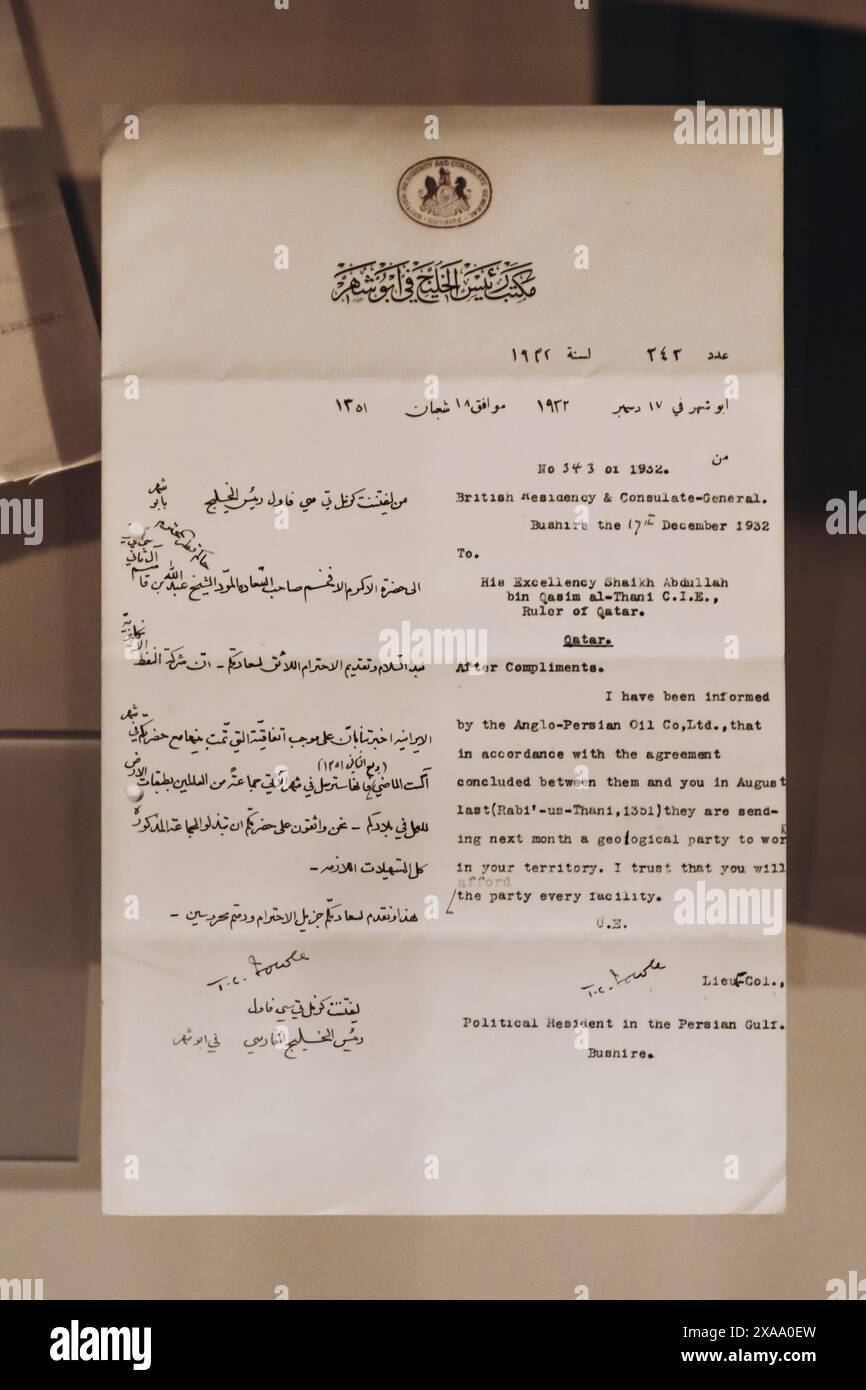 BRITISH RESIDENCY AND CONSULATE GENERAL
BUSHIRE
مكتب رئيس الخليج في ابو شهر
عدد ٣٤٣ لسنة ١٩٣٢
ابو شهر في ١٧ دسمبر ١٩٣٢ موافق ١٨ شعبان ١٣٥١
من
No 343 of 1932.
British Residency & Consulate-General.
Bushire the 17th December 1932
To.
His Excellency Shaikh Abdullah
bin Qasim al-Thani C.I.E.,
Ruler of Qatar.
Qatar.
After Compliments.
I have been informed
by the Anglo-Persian Oil Co,Ltd.,that
in accordance with the agreement
concluded between them and you in August
last(Rabi'-us-Thani,1351)they are send-
ing next month a geological party to work
in your territory. I trust that you will
afford
the party every facility.
U.E.
T.C. Fowle
Lieut-Col.,
Political Resident in the Persian Gulf.
Bushire.
من ليفتننت كرنل تي سي فاول رئيس الخليج
بابو شهر
الى حضرة الاكرم الافخم صاحب السعادة المودّ الشيخ عبدالله بن قاسم
آل ثاني
بعد السلام وتقديم الاحترام اللائق لسعادتكم - ان شركة النفط
الايرانية اخبرتنا بان على موجب اتفاقية التي تمت بينها مع حضرتكم في شهر
(ربيع الثاني ١٣٥١)
آگست الماضي فانها سترسل في شهر الآتي جماعة من العاملين بطبقات الارض
للعمل في بلادكم - نحن واثقون على حضرتكم ان تبذلوا للجماعة المذكورة
كل التسهيلات اللازمه -
هذا ونقدم لسعادتكم جزيل الاحترام ودمتم محروسين -
T.C. Fowle
ليفتننت كرنل تي سي فاول
رئيس الخليج الفارسي في ابو شهر
alamy
Image ID: 2XAA0EW
www.alamy.com